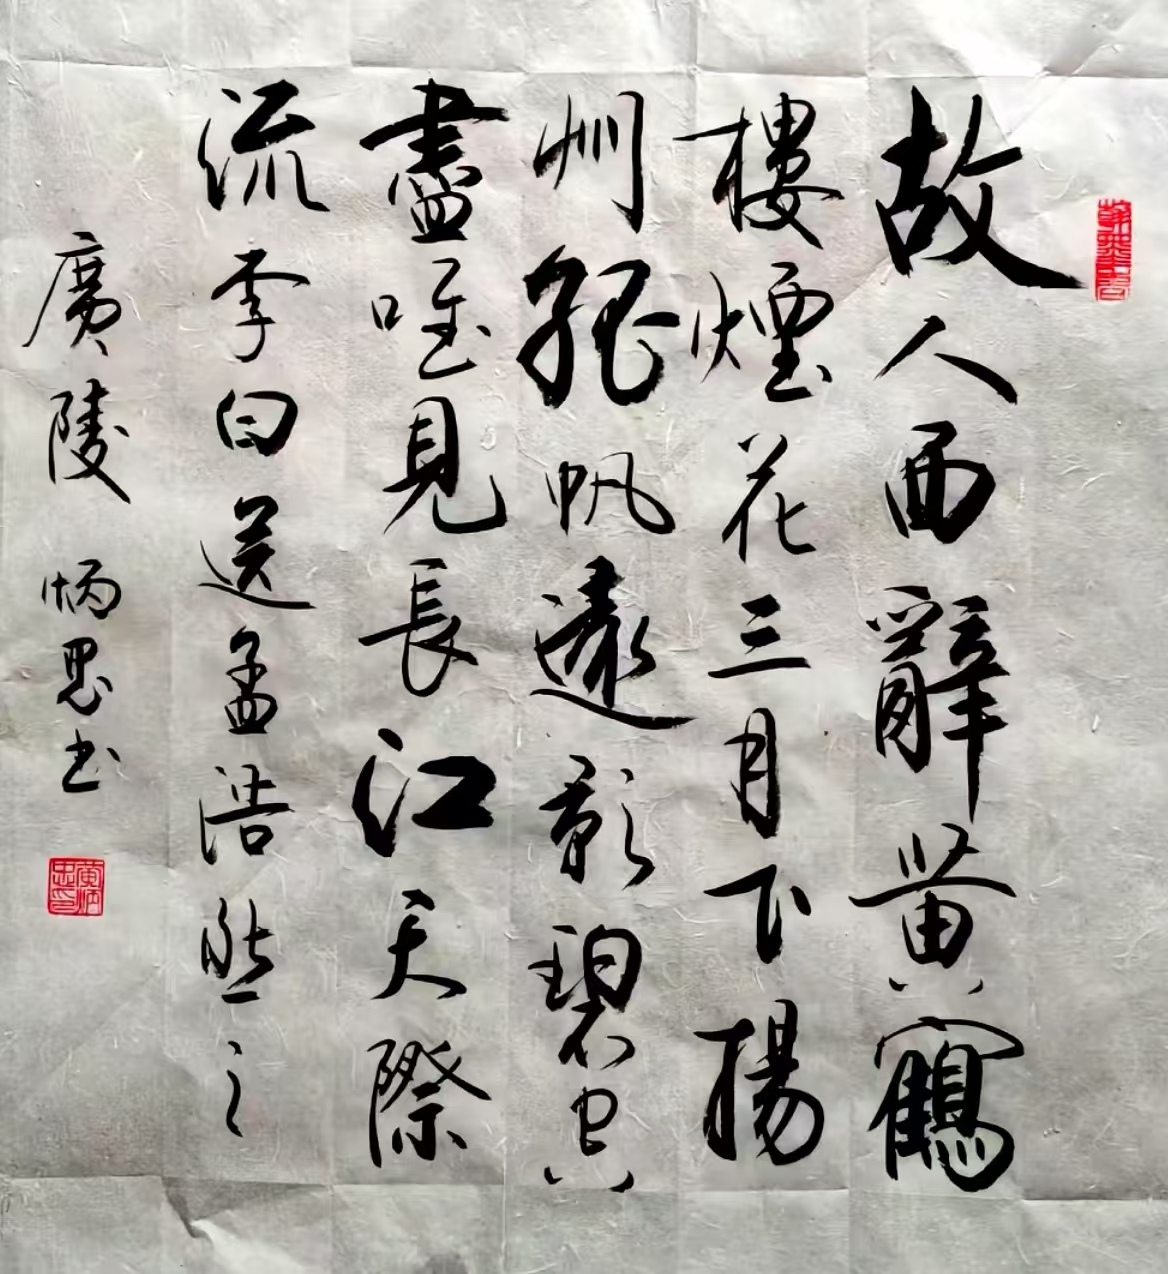 故人西辭黄鶴
樓煙花三月下揚
州孤帆遠影碧空
盡唯見長江天際
流李白送孟浩然之
廣陵 炳思书